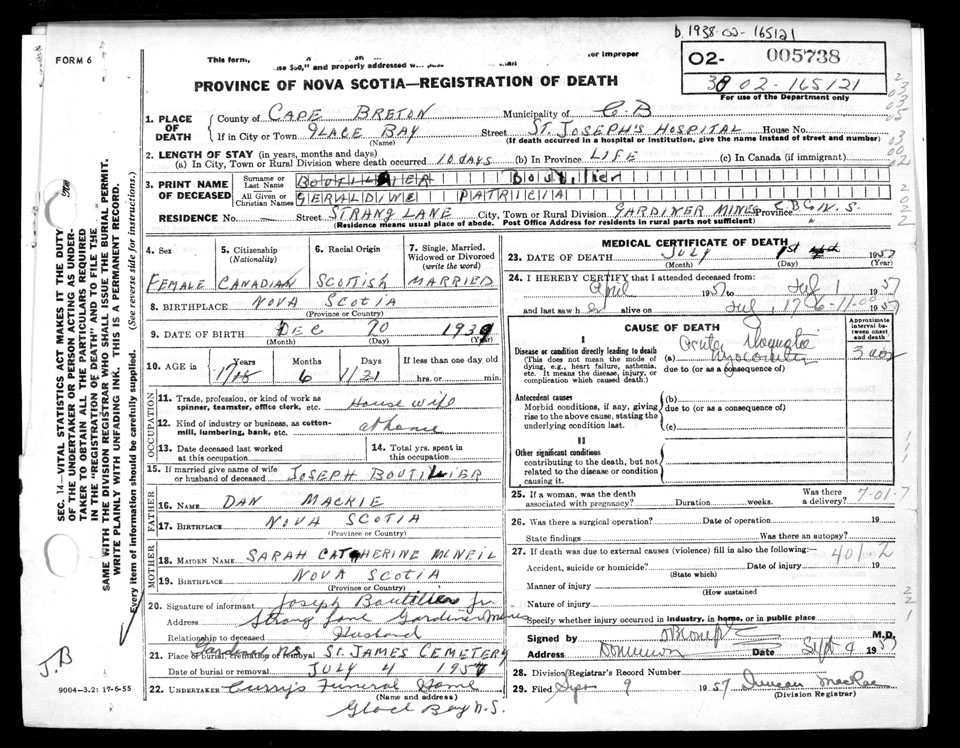 b. 1938-02-165121
FORM 6
This form, or improper
use $50," and properly addressed
02- 005738
38 02-165121
For use of the Department only
PROVINCE OF NOVA SCOTIA—REGISTRATION OF DEATH
1. PLACE OF DEATH
County of CAPE BRETON Municipality of C.B
If in City or Town GLACE BAY Street ST. JOSEPH'S HOSPITAL House No.
(Name) (If death occurred in a hospital or institution, give the name instead of street and number)
2. LENGTH OF STAY (in years, months and days)
(a) In City, Town or Rural Division where death occurred 10 days (b) In Province LIFE (c) In Canada (if immigrant)
3. PRINT NAME OF DECEASED
Surname or Last Name BOUTILIER Boutilier
All Given or Christian Names GERALDINE PATRICIA
RESIDENCE No. Street STRANG LANE City, Town or Rural Division GARDINER MINES Province C.B. N.S.
(Residence means usual place of abode. Post Office Address for residents in rural parts not sufficient)
SEC. 14—VITAL STATISTICS ACT MAKES IT THE DUTY OF THE UNDERTAKER OR PERSON ACTING AS UNDERTAKER TO OBTAIN ALL THE PARTICULARS REQUIRED IN THE "REGISTRATION OF DEATH" AND TO FILE THE SAME WITH THE DIVISION REGISTRAR WHO SHALL ISSUE THE BURIAL PERMIT.
WRITE PLAINLY WITH UNFADING INK. THIS IS A PERMANENT RECORD.
Every item of information should be carefully supplied. (See reverse side for instructions.)
4. Sex FEMALE
5. Citizenship (Nationality) CANADIAN
6. Racial Origin SCOTTISH
7. Single, Married, Widowed or Divorced (write the word) MARRIED
8. BIRTHPLACE NOVA SCOTIA
(Province or Country)
9. DATE OF BIRTH DEC 20 1939
(Month) (Day) (Year)
10. AGE in Years 18 Months 6 Days 21 If less than one day old hrs. or min.
OCCUPATION
11. Trade, profession, or kind of work as spinner, teamster, office clerk, etc. House wife
12. Kind of industry or business, as cotton-mill, lumbering, bank, etc. at home
13. Date deceased last worked at this occupation
14. Total yrs. spent in this occupation
15. If married give name of wife or husband of deceased JOSEPH BOUTILIER
FATHER
16. NAME DAN MACKIE
17. BIRTHPLACE NOVA SCOTIA
(Province or Country)
MOTHER
18. MAIDEN NAME SARAH CATHERINE MCNEIL
19. BIRTHPLACE NOVA SCOTIA
(Province or Country)
20. Signature of informant Joseph Boutilier Jr
Address Strang Lane Gardiner Mines
Relationship to deceased Husband
21. Place of burial, cremation or removal ST. JAMES CEMETERY
Date of burial or removal JULY 4 1957
22. UNDERTAKER Curry's Funeral Home
(Name and address)
Glace Bay N.S.
J.B
9004-3.2: 17-6-55
MEDICAL CERTIFICATE OF DEATH
23. DATE OF DEATH JULY 1st 1957
(Month) (Day) (Year)
24. I HEREBY CERTIFY that I attended deceased from:
April 1957 to July 1 1957
and last saw h er alive on July 1 1957
CAUSE OF DEATH
Approximate interval between onset and death
I
Disease or condition directly leading to death
(This does not mean the mode of dying, e.g., heart failure, asthenia, etc. It means the disease, injury, or complication which caused death.)
(a) Acute Myocarditis
due to (or as a consequence of)
Antecedent causes
Morbid conditions, if any, giving rise to the above cause, stating the underlying condition last.
(b)
due to (or as a consequence of)
(c)
II
Other significant conditions
contributing to the death, but not related to the disease or condition causing it.
25. If a woman, was the death associated with pregnancy? Duration weeks. Was there a delivery? 7-01-7
26. Was there a surgical operation? Date of operation 19
State findings Was there an autopsy?
27. If death was due to external causes (violence) fill in also the following:— 401.2
Accident, suicide or homicide? Date of injury 19
(State which)
Manner of injury
(How sustained
Nature of injury
Specify whether injury occurred in industry, in home, or in public place
Signed by M.D.
Address Dominion Date Sept 9 1957
28. Division Registrar's Record Number
29. Filed Sept 9 1957 Duncan MacRae
(Division Registrar)